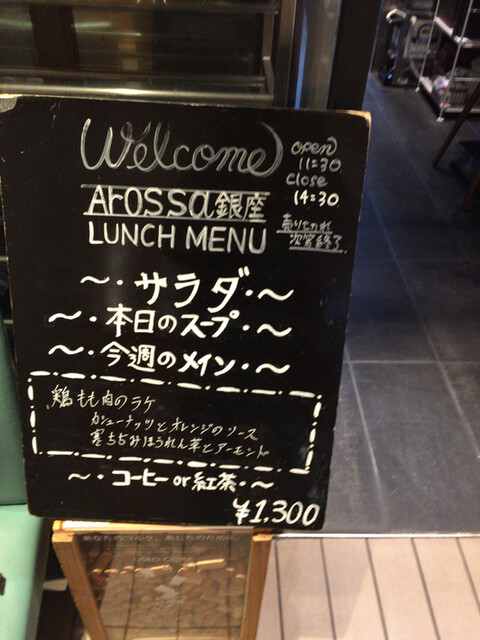 Welcome
open
11:30
close
14:30
Arossa銀座
LUNCH MENU
売り切れ次第終了
～・サラダ・～
～・本日のスープ・～
～・今週のメイン・～
鶏もも肉のラケ
カシューナッツとオレンジのソース
寒ちぢみほうれん草とアーモンド
～・コーヒー or 紅茶・～
¥1,300
あなたのコルク、あしたのために。